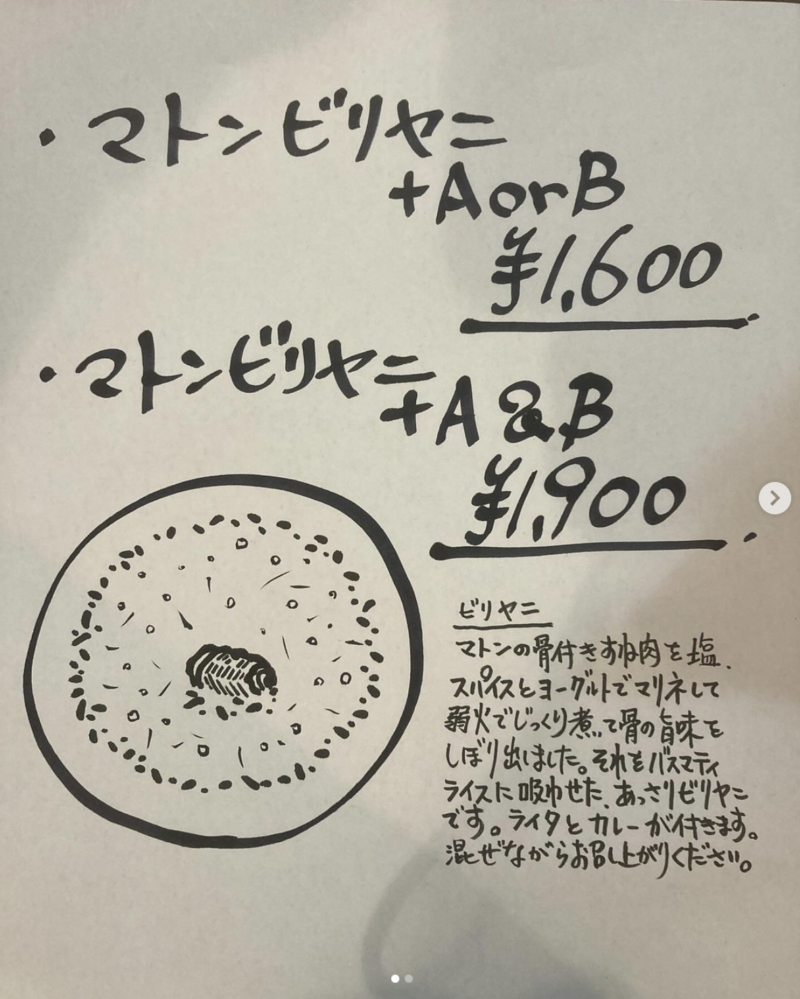 ・マトンビリヤニ
+AorB
¥1,600
・マトンビリヤニ
+A&B
¥1,900
ビリヤニ
マトンの骨付きすね肉を塩、
スパイスとヨーグルトでマリネして
弱火でじっくり煮て骨の旨味を
しぼり出しました。それをバスマティ
ライスに吸わせた、あっさりビリヤニ
です。ライタとカレーが付きます。
混ぜながらお召し上がりください。